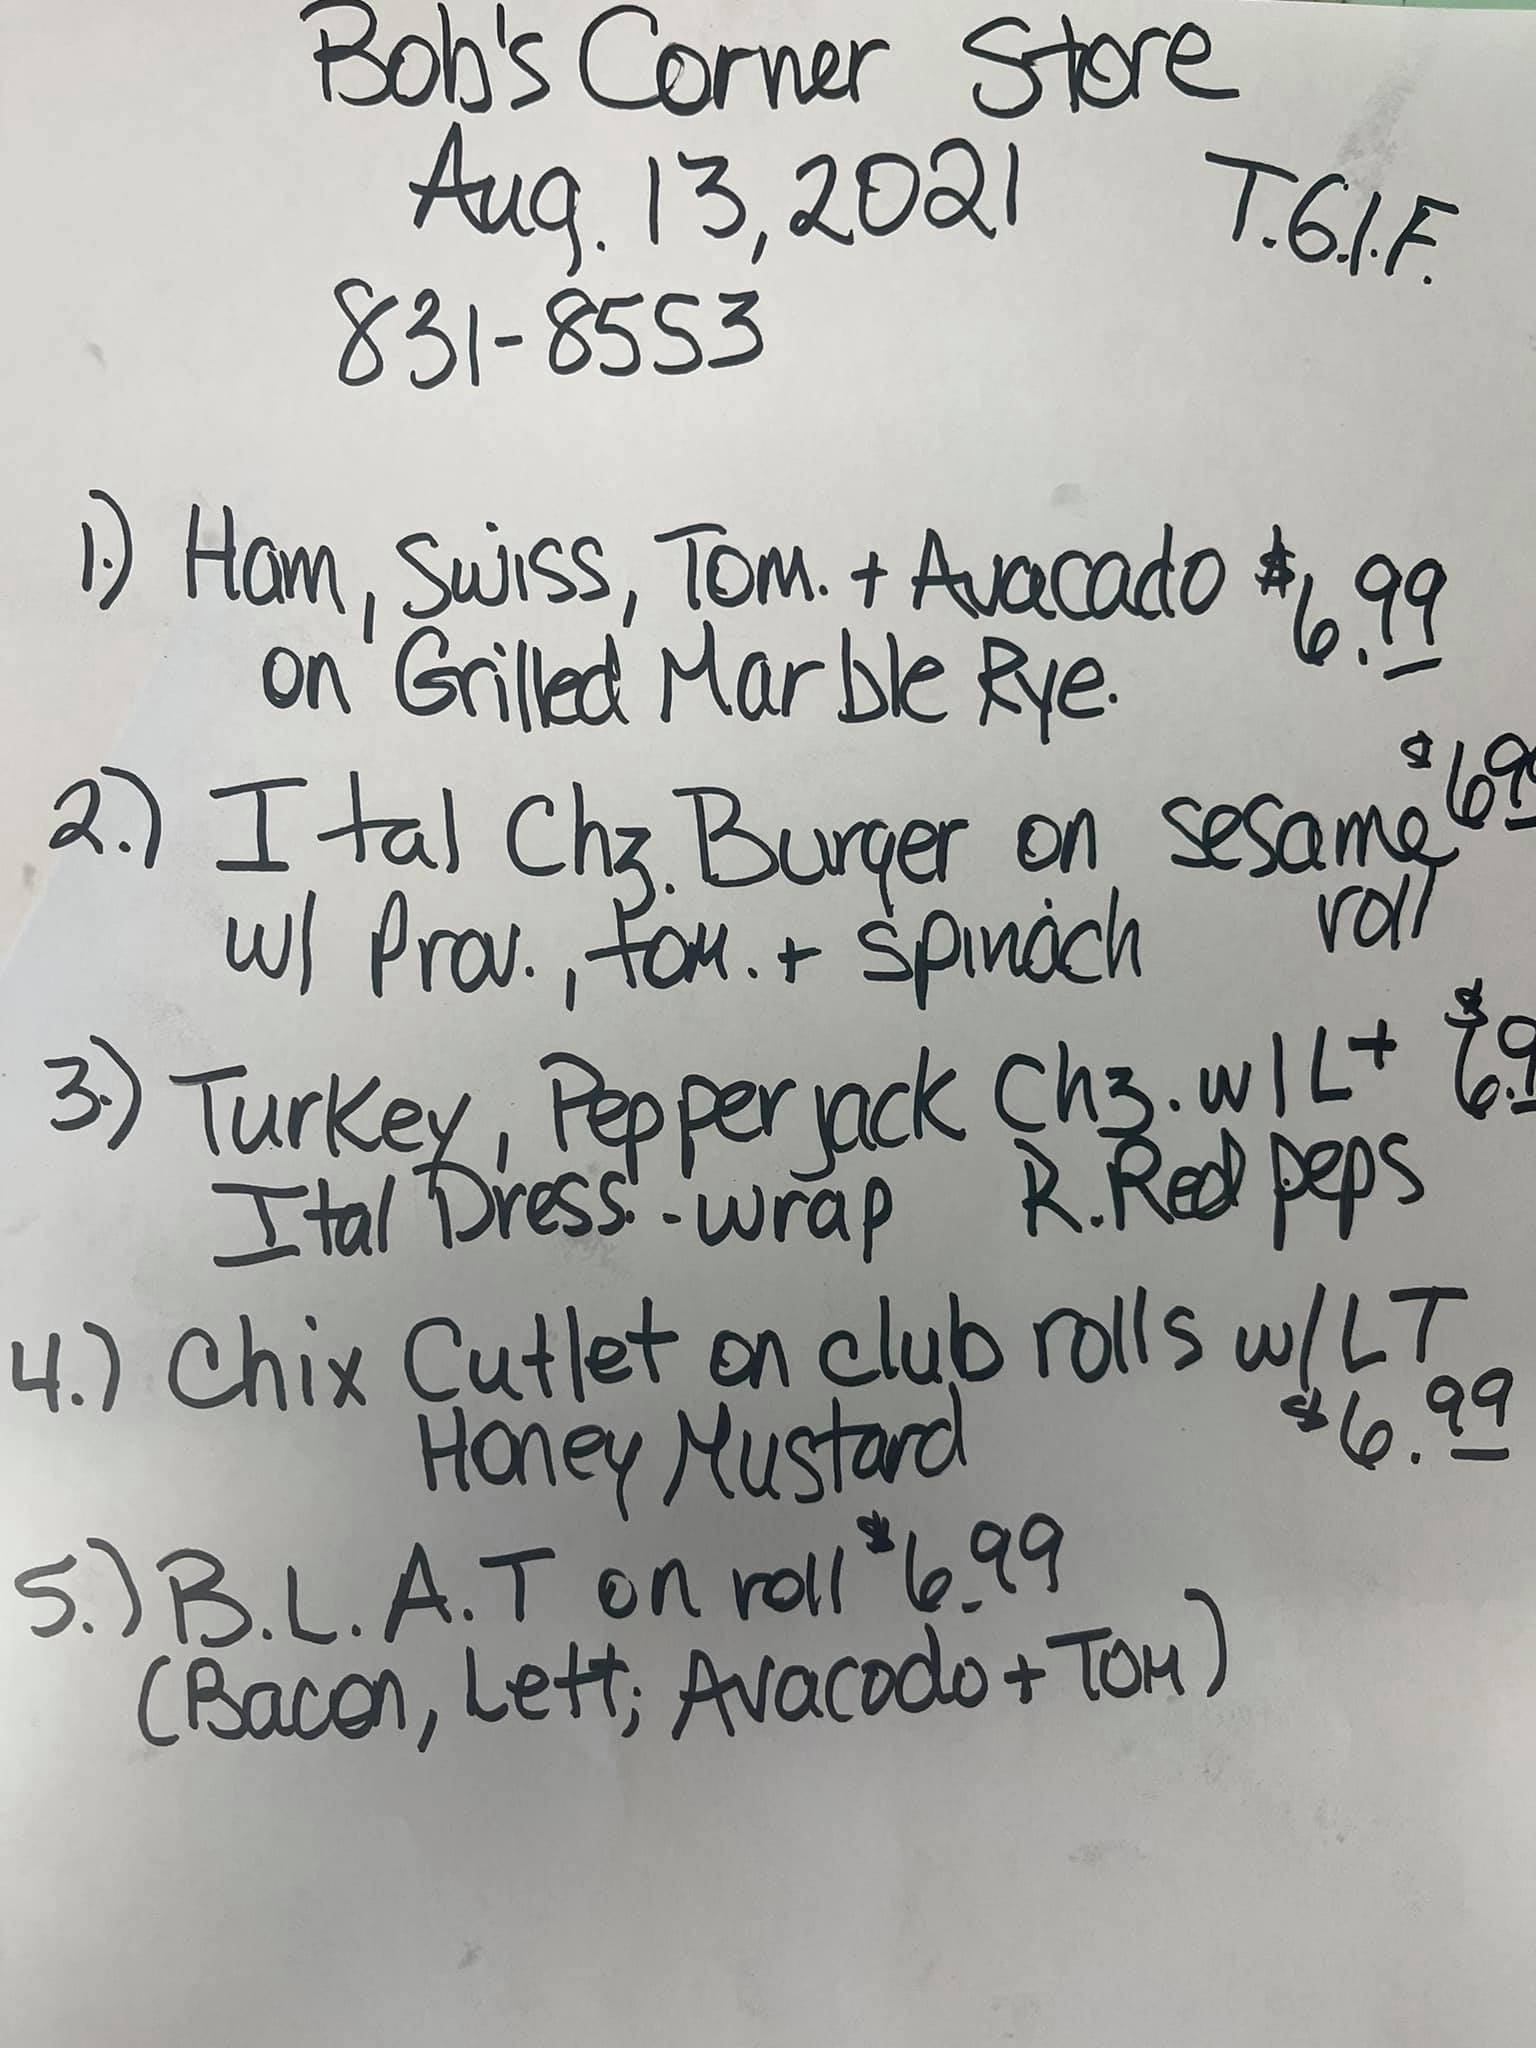 Bob's Corner Store
Aug. 13, 2021 T.G.I.F.
831-8553
1.) Ham, Swiss, Tom. + Avacado $6.99
on Grilled Marble Rye.
2.) Ital Chz. Burger on sesame $699
w/ Prov., tom. + spinach roll
3.) Turkey, Pepper jack Chz. w/L+ $6.9
Ital Dress. - wrap R. Red peps
4.) Chix Cutlet on club rolls w/LT
Honey Mustard $6.99
5.) B.L.A.T on roll $6.99
(Bacon, Lett, Avacodo + Tom)